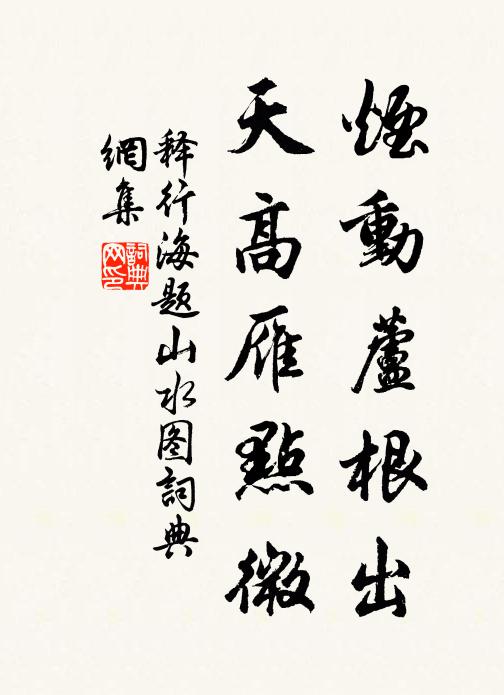 煙動蘆根出
天高雁點微
释行海题山水图詞典
網集
詞典
网印